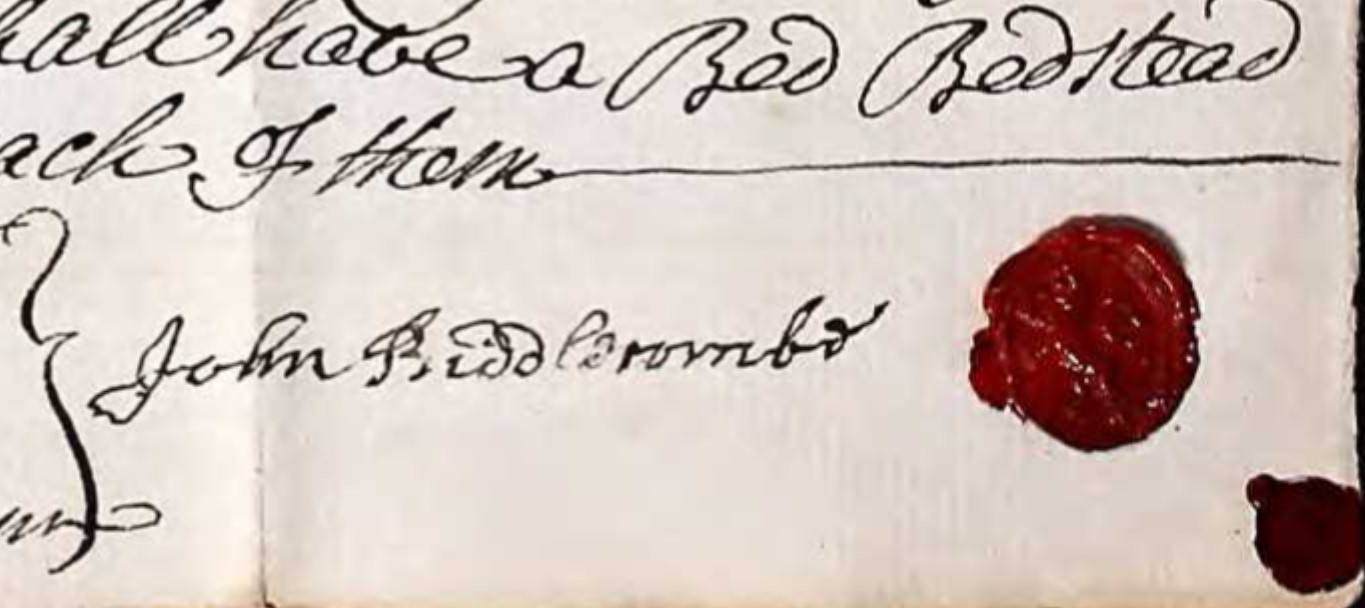 hall have a Bed Bedstead
ach of them
John Riddlecombe